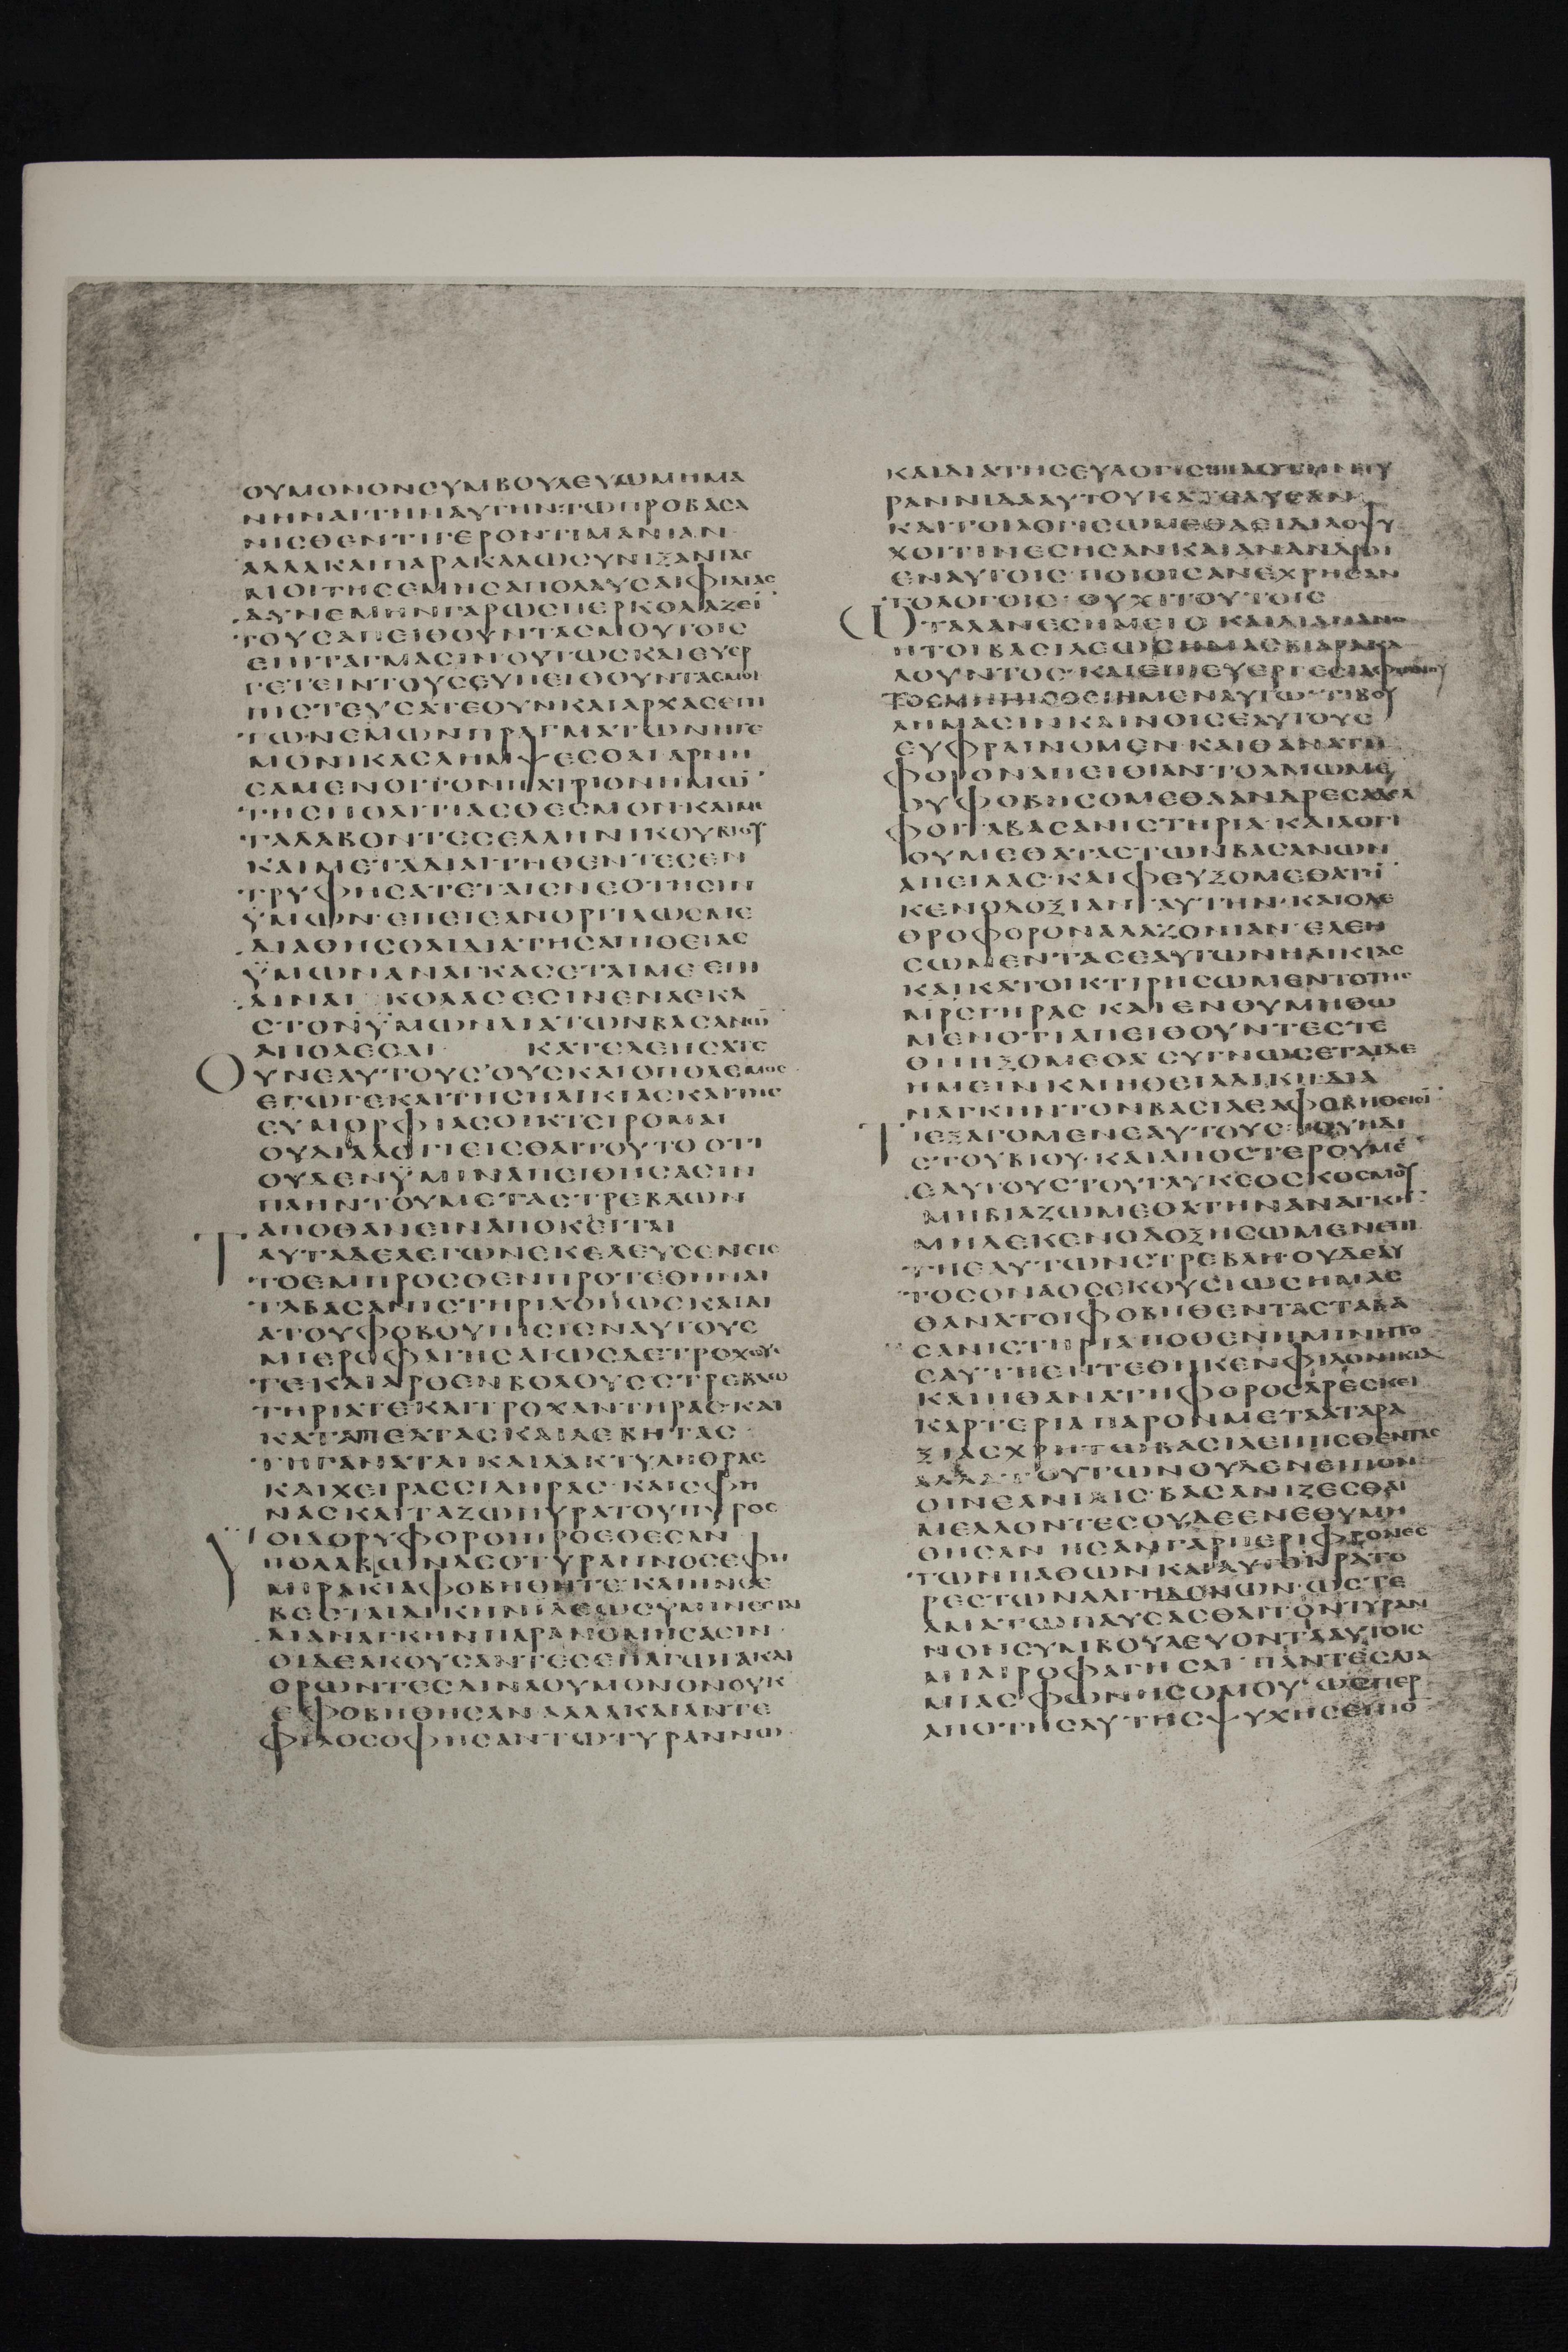 ΟΥΜΟΝΟΝΣΥΜΒΟΥΛΕΥΩΜΗΜΑ
ΝΗΝΑΙΤΗΝΑΥΤΗΝΤΩΠΡΟΒΑΣΑ
ΝΙΣΘΕΝΤΙΓΕΡΟΝΤΙΜΑΝΙΑΝ·
ΑΛΛΑΚΑΙΠΑΡΑΚΑΛΩΣΥΝΙΞΑΝΤΑΣ
ΜΟΙΤΗΣΕΜΗΣΑΠΟΛΑΥΣΑΙΦΙΛΙΑΣ
ΔΥΝΕΜΗΝΓΑΡΩΣΠΕΡΚΟΛΑΖΕΙ
ΤΟΥΣΑΠΕΙΘΟΥΝΤΑΣΜΟΥΤΟΙΣ
ΕΠΙΤΑΓΜΑΣΙΝΟΥΤΩΣΚΑΙΕΥΕΡ
ΓΕΤΕΙΝΤΟΥΣΕΥΠΕΙΘΟΥΝΤΑΣΜΟΙ
ΠΙΣΤΕΥΣΑΤΕΟΥΝΚΑΙΑΡΧΑΣΕΠΙ
ΤΩΝΕΜΩΝΠΡΑΓΜΑΤΩΝΗΓΕ
ΜΟΝΙΚΑΣΛΗΜΨΕΣΘΑΙΑΡΝΗ
ΣΑΜΕΝΟΙΤΟΝΠΑΤΡΙΟΝΗΜΩ
ΤΗΣΠΟΛΙΤΙΑΣΘΕΣΜΟΝ·ΚΑΙΜΕ
ΤΑΛΑΒΟΝΤΕΣΕΛΛΗΝΙΚΟΥΒΙΟΥ
ΚΑΙΜΕΤΑΔΙΑΙΤΗΘΕΝΤΕΣΕΝ
ΤΡΥΦΗΣΑΤΕΤΑΙΣΝΕΟΤΗΣΙΝ
ΫΜΩΝ·ΕΠΕΙΕΑΝΟΡΓΙΛΩΣΜΕ
ΔΙΑΘΗΣΘΑΙΔΙΑΤΗΣΑΠΙΘΕΙΑΣ
ΫΜΩΝΑΝΑΓΚΑΣΕΤΑΙΜΕΕΠΙ
ΔΙΝΑΙ ΚΟΛΑΣΕΣΙΝΕΝΑΕΚΑ
ΣΤΟΝΫΜΩΝΔΙΑΤΩΝΒΑΣΑΝΩ
ΑΠΟΛΕΣΑΙ ΚΑΤΕΛΕΗΣΑΤΕ
ΟΥΝΕΑΥΤΟΥΣ·ΟΥΣΚΑΙΟΠΟΛΕΜΙΟΣ
ΕΓΩΓΕΚΑΙΤΗΣΗΛΙΚΙΑΣΚΑΙΤΗΣ
ΕΥΜΟΡΦΙΑΣΟΙΚΤΕΙΡΟΜΑΙ
ΟΥΔΙΑΛΟΓΙΕΙΣΘΑΙΤΟΥΤΟΟΤΙ
ΟΥΔΕΝΫΜΙΝΑΠΕΙΘΗΣΑΣΙΝ
ΠΛΗΝΤΟΥΜΕΤΑΣΤΡΕΒΛΩΝ
ΑΠΟΘΑΝΕΙΝΑΠΟΚΕΙΤΑΙ
ΤΑΥΤΑΔΕΛΕΓΩΝΕΚΕΛΕΥΣΕΝΕΙΣ
ΤΟΕΜΠΡΟΣΘΕΝΠΡΟΤΕΘΗΝΑΙ
ΤΑΒΑΣΑΝΙΣΤΗΡΙΑΟΠΩΣΚΑΙΔΙ
ΑΤΟΥΦΟΒΟΥΠΙΣΙΕΝΑΥΤΟΥΣ
ΜΙΕΡΟΦΑΓΗΣΑΙΩΣΔΕΤΡΟΧΟΥΣ
ΤΕΚΑΙΑΡΘΕΝΒΟΛΟΥΣΣΤΡΕΒΛΩ
ΤΗΡΙΑΤΕΚΑΙΤΡΟΧΑΝΤΗΡΑΣ·ΚΑΙ
ΚΑΤΑΠΕΛΤΑΣΚΑΙΛΕΒΗΤΑΣ·
ΤΗΓΑΝΑΤΑΙΚΑΙΔΑΚΤΥΛΗΘΡΑΣ
ΚΑΙΧΕΙΡΑΣΣΙΔΗΡΑΣ·ΚΑΙΣΦΗ
ΝΑΣΚΑΙΤΑΖΩΠΥΡΑΤΟΥΠΥΡΟΣ
ΟΙΔΟΡΥΦΟΡΟΙΠΡΟΕΘΕΣΑΝ
ΥΠΟΛΑΒΩΝΔΕΟΤΥΡΑΝΝΟΣΕΦΗ
ΜΙΡΑΚΙΑΦΟΒΗΘΗΤΕ·ΚΑΙΗΝΣΕ
ΒΕΣΤΑΙΔΙΚΗΝΙΛΕΩΣΥΜΙΝΕΣΤΑΙ
ΔΙΑΝΑΓΚΗΝΠΑΡΑΝΟΜΗΣΑΣΙΝ·
ΟΙΔΕΑΚΟΥΣΑΝΤΕΣΕΠΑΓΩΓΑΚΑΙ
ΟΡΩΝΤΕΣΔΙΝΑΟΥΜΟΝΟΝΟΥΚ
ΕΦΟΒΗΘΗΣΑΝΑΛΛΑΚΑΙΑΝΤΕ
ΦΙΛΟΣΟΦΗΣΑΝΤΩΤΥΡΑΝΝΩ·
ΚΑΙΔΙΑΤΗΣΕΥΛΟΓΙΣΤΙΑΣ
ΡΑΝΝΙΔΑΑΥΤΟΥΚΑΤΕΛΥΣΑΝ
ΚΑΙΤΟΙΛΟΓΙΣΩΜΕΘΑΕΙΔΙΛΟΨΥ
ΧΟΙΤΙΝΕΣΗΣΑΝΚΑΙΑΝΑΝΔΡΟΙ
ΕΝΑΥΤΟΙΣ·ΠΟΙΟΙΣΑΝΕΧΡΗΣΑΝ
ΤΟΛΟΓΟΙΣ·ΟΥΧΙΤΟΥΤΟΙΣ
ΩΤΑΛΑΝΕΣΗΜΕΙΣ ΚΑΙΛΙΑΝΑΝΟ
ΗΤΟΙΒΑΣΙΛΕΩΣΗΜΑΣΒΙΑΠΑΡΑΚΑ
ΛΟΥΝΤΟΣ·ΚΑΙΕΠΙΕΥΕΡΓΕΣΙΑ
ΤΟΣΜΗΠΙΣΘΕΙΗΜΕΝΑΥΤΩ·ΤΙΒΟΥ
ΛΗΜΑΣΙΝΚΑΙΝΟΙΣΕΑΥΤΟΥΣ
ΕΥΦΡΑΙΝΟΜΕΝ·ΚΑΙΘΑΝΑΤΗ
ΦΟΡΟΝΑΠΕΙΘΙΑΝΤΟΛΜΩΜΕ
ΟΥΦΟΒΗΣΟΜΕΘΑΑΝΔΡΕΣΑΔΕΛ
ΦΟΙΤΑΒΑΣΑΝΙΣΤΗΡΙΑ·ΚΑΙΛΟΓΙ
ΟΥΜΕΘΑΤΑΣΤΩΝΒΑΣΑΝΩΝ
ΑΠΕΙΛΑΣ·ΚΑΙΦΕΥΞΟΜΕΘΑΤΗ
ΚΕΝΟΔΟΞΙΑΝΤΑΥΤΗΝ·ΚΑΙΟΛΕ
ΘΡΟΦΟΡΟΝΑΛΑΖΟΝΙΑΝ·ΕΛΕΗ
ΣΩΜΕΝΤΑΣΕΑΥΤΩΝΗΛΙΚΙΑΣ
ΚΑΙΚΑΤΟΙΚΤΙΡΗΣΩΜΕΝΤΟΤΗΣ
ΜΡΣΓΗΡΑΣ·ΚΑΙΕΝΘΥΜΗΘΩ
ΜΕΝΟΤΙΑΠΕΙΘΟΥΝΤΕΣΤΕ
ΘΝΗΞΟΜΕΘΑ·ΣΥΓΝΩΣΕΤΑΙΔΕ
ΗΜΕΙΝΚΑΙΗΘΕΙΑΔΙΚΗΔΙΑ
ΝΑΓΚΗΝΤΟΝΒΑΣΙΛΕΑΦΟΒΗΘΕΙΣΙ
ΤΙΕΞΑΓΟΜΕΝΕΑΥΤΟΥΣΤΟΥΗΔΙ
ΣΤΟΥΒΙΟΥ·ΚΑΙΑΠΟΣΤΕΡΟΥΜΕ
ΕΑΥΤΟΥΣΤΟΥΓΛΥΚΕΟΣΚΟΣΜΟΥ
ΜΗΒΙΑΖΩΜΕΘΑΤΗΝΑΝΑΓΚΗ·
ΜΗΔΕΚΕΝΟΔΟΞΗΣΩΜΕΝΕΠΙ
ΤΗΕΑΥΤΩΝΣΤΡΕΒΛΗ·ΟΥΔΕΑΥ
ΤΟΣΟΝΑΟΣΕΚΟΥΣΙΩΣΗΜΑΣ
ΘΑΝΑΤΟΙΦΟΒΗΘΕΝΤΑΣΤΑΒΑ
ΣΑΝΙΣΤΗΡΙΑΠΟΘΕΝΗΜΙΝΗΤΟ
ΣΑΥΤΗΕΝΤΕΘΗΚΕΝΦΙΛΟΝΙΚΙΑ
ΚΑΙΗΘΑΝΑΤΗΦΟΡΟΣΑΡΕΣΚΕΙ
ΚΑΡΤΕΡΙΑΠΑΡΟΝΜΕΤΑΑΤΑΡΑ
ΞΙΑΣΧΡΗΤΩΒΑΣΙΛΕΙΠΙΣΘΕΝΤΑΣ
ΑΛΛΑΤΟΥΤΩΝΟΥΔΕΝΕΙΠΟΝ
ΟΙΝΕΑΝΙΔΙΣ·ΒΑΣΑΝΙΖΕΣΘΑΙ
ΜΕΛΛΟΝΤΕΣΟΥΔΕΕΝΕΘΥΜΗ
ΘΗΣΑΝ ΗΣΑΝΓΑΡΠΕΡΙΦΡΟΝΕΣ
ΤΩΝΠΑΘΩΝΚΑΙΑΥΤΟΚΡΑΤΟ
ΡΕΣΤΩΝΑΛΓΗΔΟΝΩΝ·ΩΣΤΕ
ΑΜΑΤΩΠΑΥΣΑΣΘΑΙΤΟΝΤΥΡΑΝ
ΝΟΝΣΥΜΒΟΥΛΕΥΟΝΤΑΑΥΤΟΙΣ
ΜΙΑΙΡΟΦΑΓΗΣΑΙ ΠΑΝΤΕΣΔΙΑ
ΜΙΑΣΦΩΝΗΣΟΜΟΥ·ΩΣΠΕΡ
ΑΠΟΤΗΣΑΥΤΗΣΨΥΧΗΣΕΙΠΟ